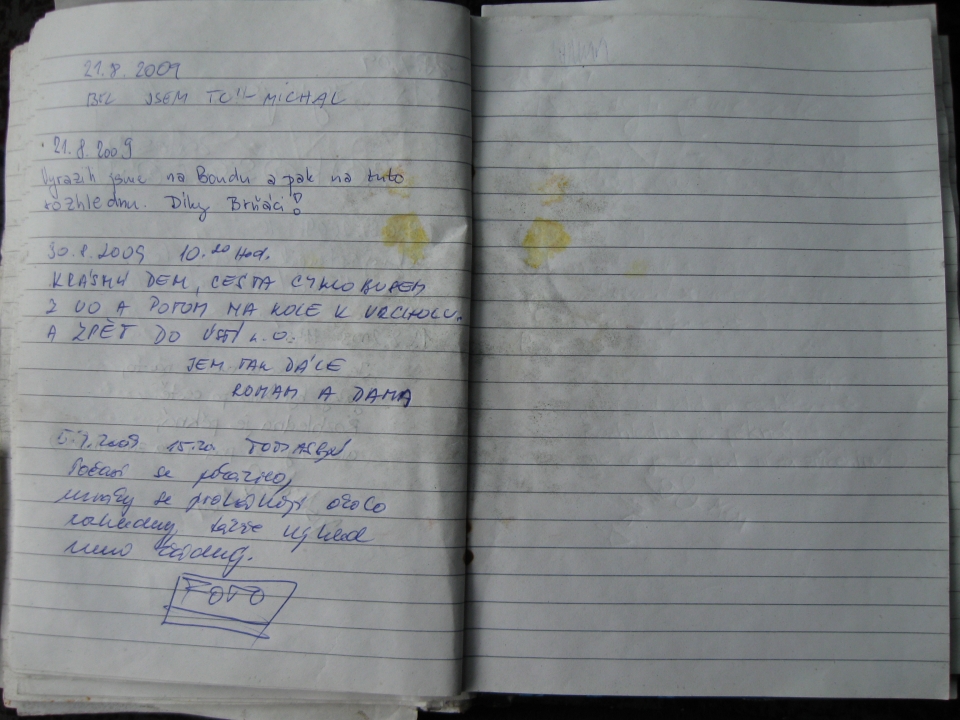 21.8.2009
BYL JSEM TU - MICHAL
21.8.2009
Vyrazili jsme na Boudu a pak na tuto
rozhlednu. Díky Brňáci!
30.8.2009 10.20 HOD.
KRÁSNÝ DEN, CESTA CYKLOBUSEM
Z UO A POTOM NA KOLE K VRCHOLU.
A ZPĚT DO ÚSTÍ n. O.
JEN TAK DÁLE
ROMAN A DANA
5.9.2009 15.20
Počasí se
mraky se prohánějí okolo
rozhledny, takže výhled
není žádný.
FOTO